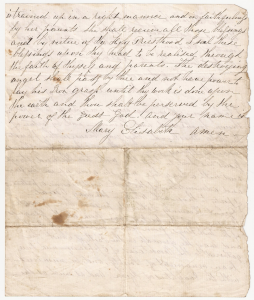 trained up in a right manner and in faithfulness
by her parents she shall receive all those blessings
and in virtue of the Holy Priesthood I seal these
blessings upon thy head to be realized through
the faith of thyself and parents. The destroying
angel shall pass by thee and not have power to
lay his iron grasp until thy work is done upon
the earth and thou shalt be preserved by the
power of the great God and your name is
Mary Elisabeth amen